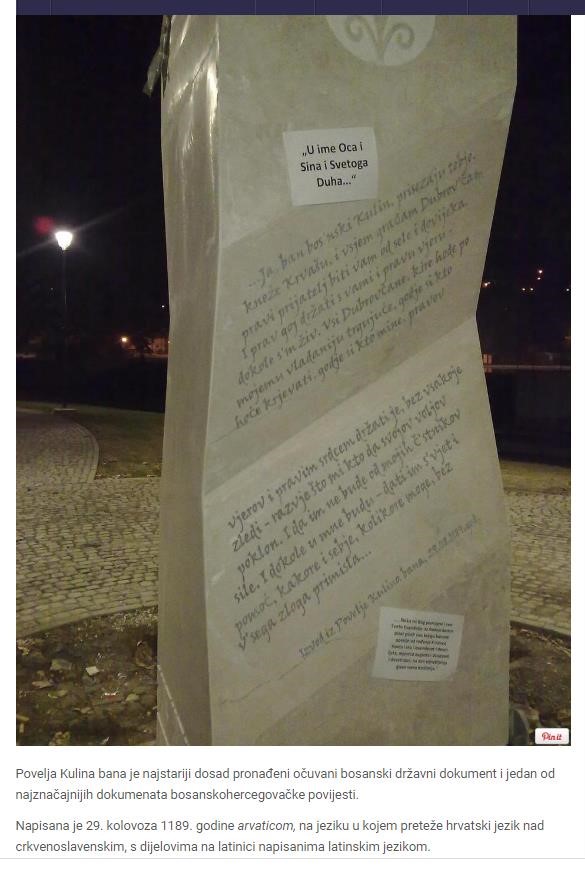 „U ime Oca i
Sina i Svetoga
Duha...“
...Ja, ban bos'nski Kulin, prisezaju tebje,
kneže Krvašu, i vsjem građam Dubrov'čam
pravi prijatelj biti vam od sele i dovijeka.
I prav goj držati s vami i pravu vjeru -
dokole s'm živ. Vsi Dubrovčane, kire hode po
mojemu vladaniju trgujuće, godje si kto
hoće krjevati, godje si kto mine, pravov
vjerov i pravim srdcem držati je, bez vsakoje
zledi - razvje što mi kto da svojov voljov
poklon. I da im ne bude od mojih č'stnikov
sile. I dokole u mne budu - dati im s'vjet i
pomoć, kakore i sebje, kolikore moge, bez
v'sega zloga primisla...
Izvod iz Povelje Kulina bana, 29.08.1189. god.
Pin it
Povelja Kulina bana je najstariji dosad pronađeni očuvani bosanski državni dokument i jedan od
najznačajnijih dokumenata bosanskohercegovačke povijesti.
Napisana je 29. kolovoza 1189. godine arvaticom, na jeziku u kojem preteže hrvatski jezik nad
crkvenoslavenskim, s dijelovima na latinici napisanima latinskim jezikom.